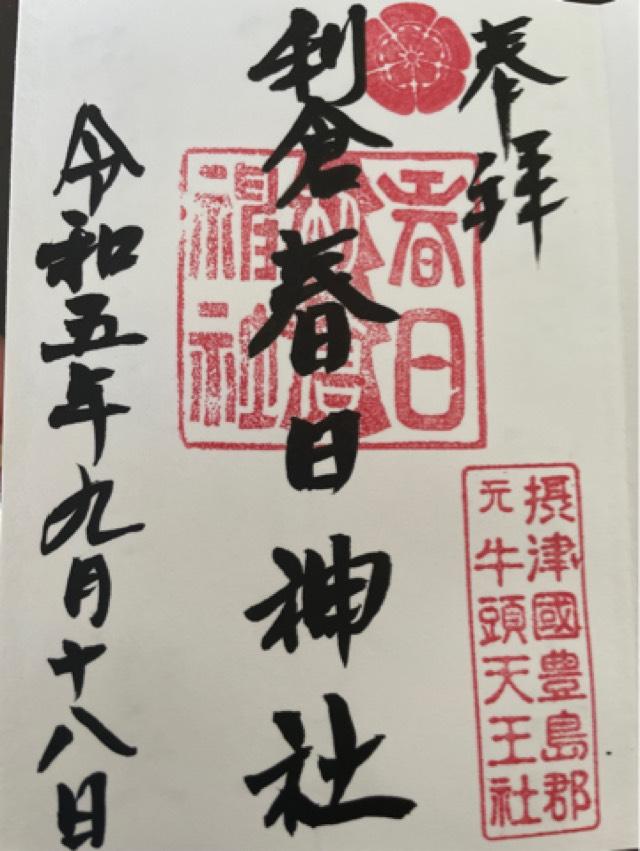 奉拝
摂津國豊島郡
元牛頭天王社
春日
社
利倉春日神社
令和五年九月十八日